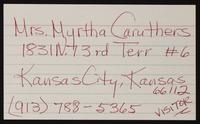 Mrs. Myrtha Caruthers
1831 N 73rd Terr #6
Kansas City, Kansas
66112
(913) 788-5365 VISITOR